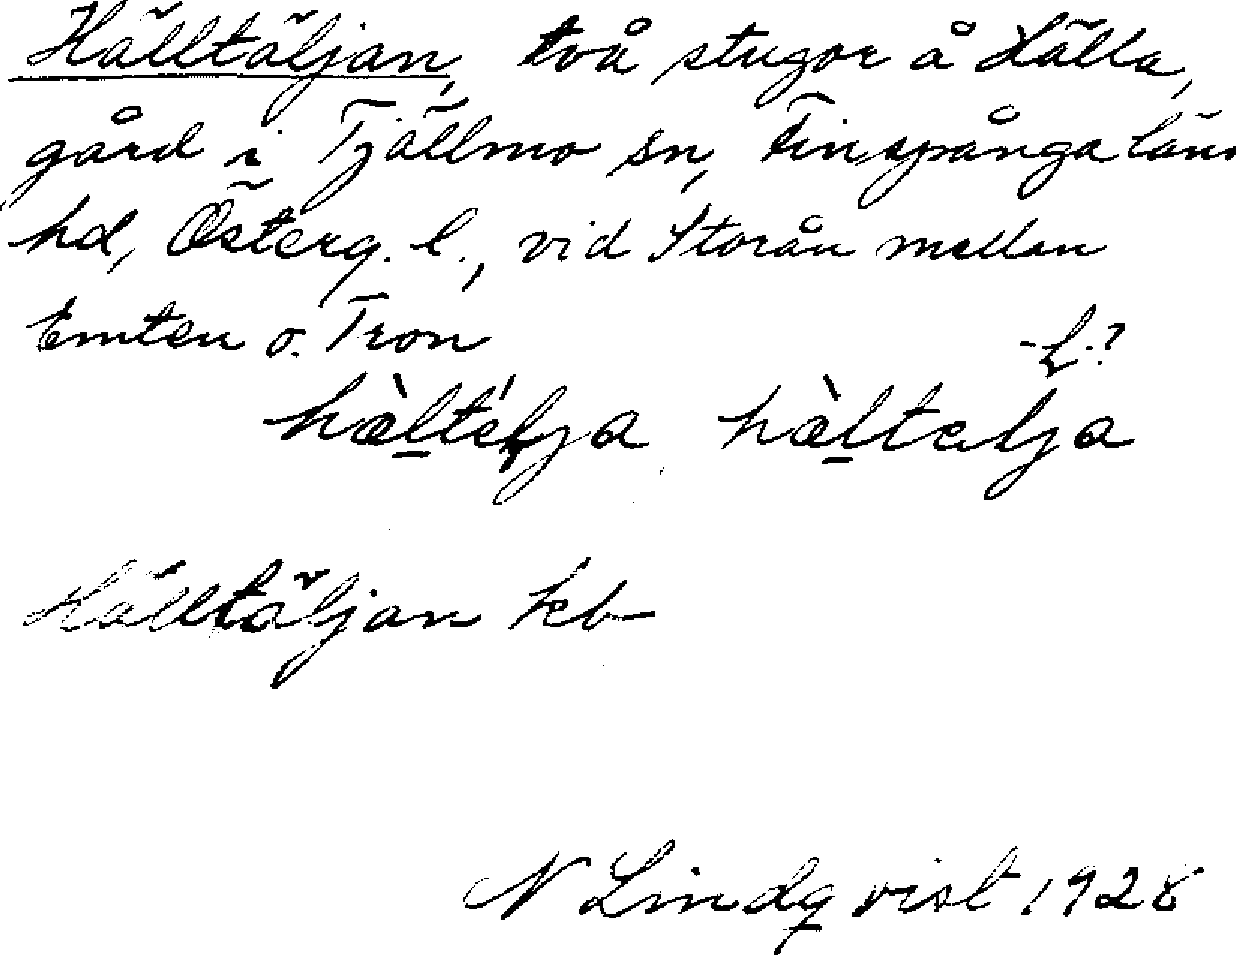 Hälltäljan, två stugor å Hälla,
gård i Tjällmo sn, Finspånga läns
hd, Österg. l., vid Storån mellan
Emten o. Tron
-ḷ.?
hæ̀ltélja hæ̀ltelja
Hälltäljan keb
N Lindqvist 1928